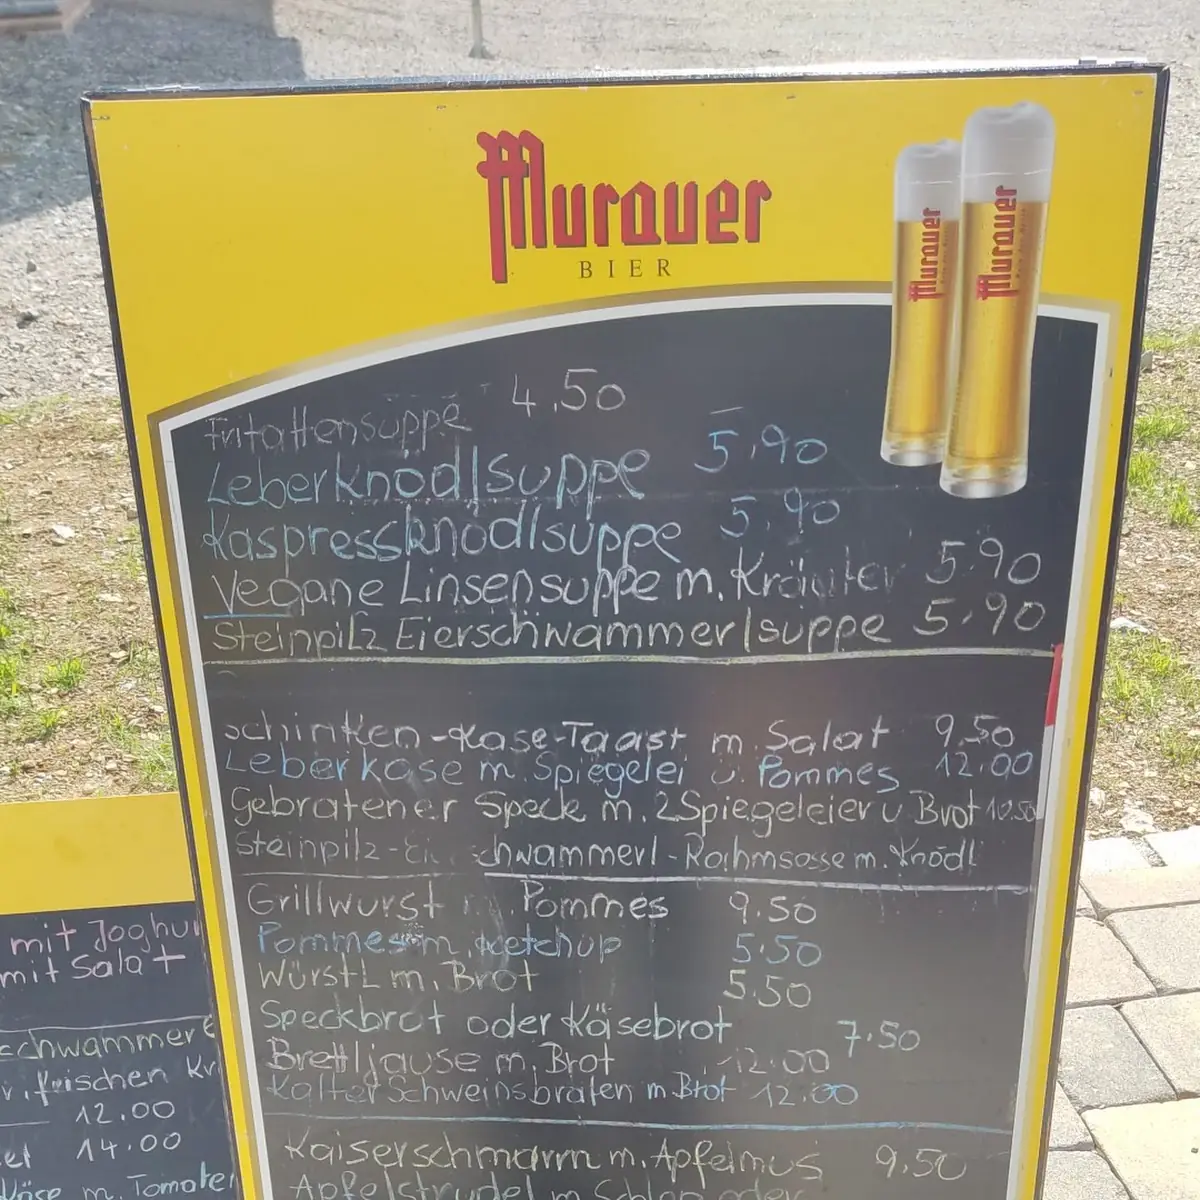 Murauer
BIER
Murauer
Murauer
Frittattensuppe 4,50
Leberknödlsuppe 5,90
Kaspressknödlsuppe 5,90
Vegane Linsensuppe m. Kräuter 5.90
Steinpilz Eierschwammerlsuppe 5.90
Schinken-Käse-Taast m. Salat 9.50
Leberkäse m. Spiegelei u. Pommes 12.00
Gebratener Speck m. 2 Spiegeleier u Brot 10.50
Steinpilz- schwammerl-Rahmsosse m. Knödl
Grillwurst Pommes 9.50
Pommes m. Ketchup 5.50
WürstL m. Brot 5.50
Speckbrot oder Käsebrot 7.50
Brettljause m. Brot 12.00
Kalter Schweinsbraten m. Brot 12.00
Kaiserschmarrn m. Apfelmus 9,50
Apfelstrudel m. Schlag oder
mit Joghur
mit Salat
schwammer
v. frischen Kr
12.00
14.00
m. Tomate